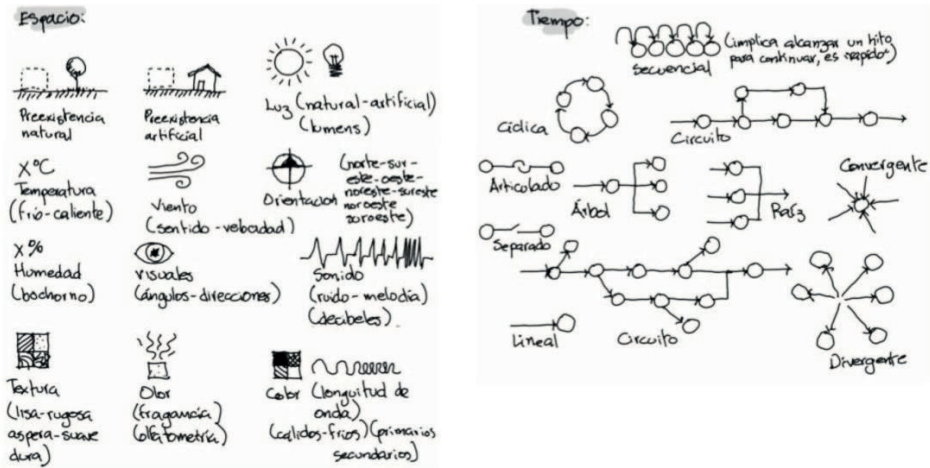 Espacio:
Preexistencia
natural
Preexistencia
artificial
Luz (natural-artificial)
(lumens)
X°C
Temperatura
(frío-caliente)
Viento
(sentido-velocidad)
Orientacion
(norte-sur-
este-oeste-
noreste-sureste
noroeste
suroeste)
X%
Humedad
(bochorno)
Visuales
(ángulos-direcciones)
Sonido
(ruido-melodía)
(decibeles)
Textura
(lisa-rugosa
aspera-suave
dura)
Olor
(fragancia)
(olfatometría)
Color (longuitud de
onda)
(calidos-fríos)(primarios
secundarios)
Tiempo:
(implica alcanzar un hito
para continuar, es "rapido")
secuencial
Cíclica
Circuito
Articulado
Árbol
Raíz
Convergente
Separado
Lineal
Circuito
Divergente